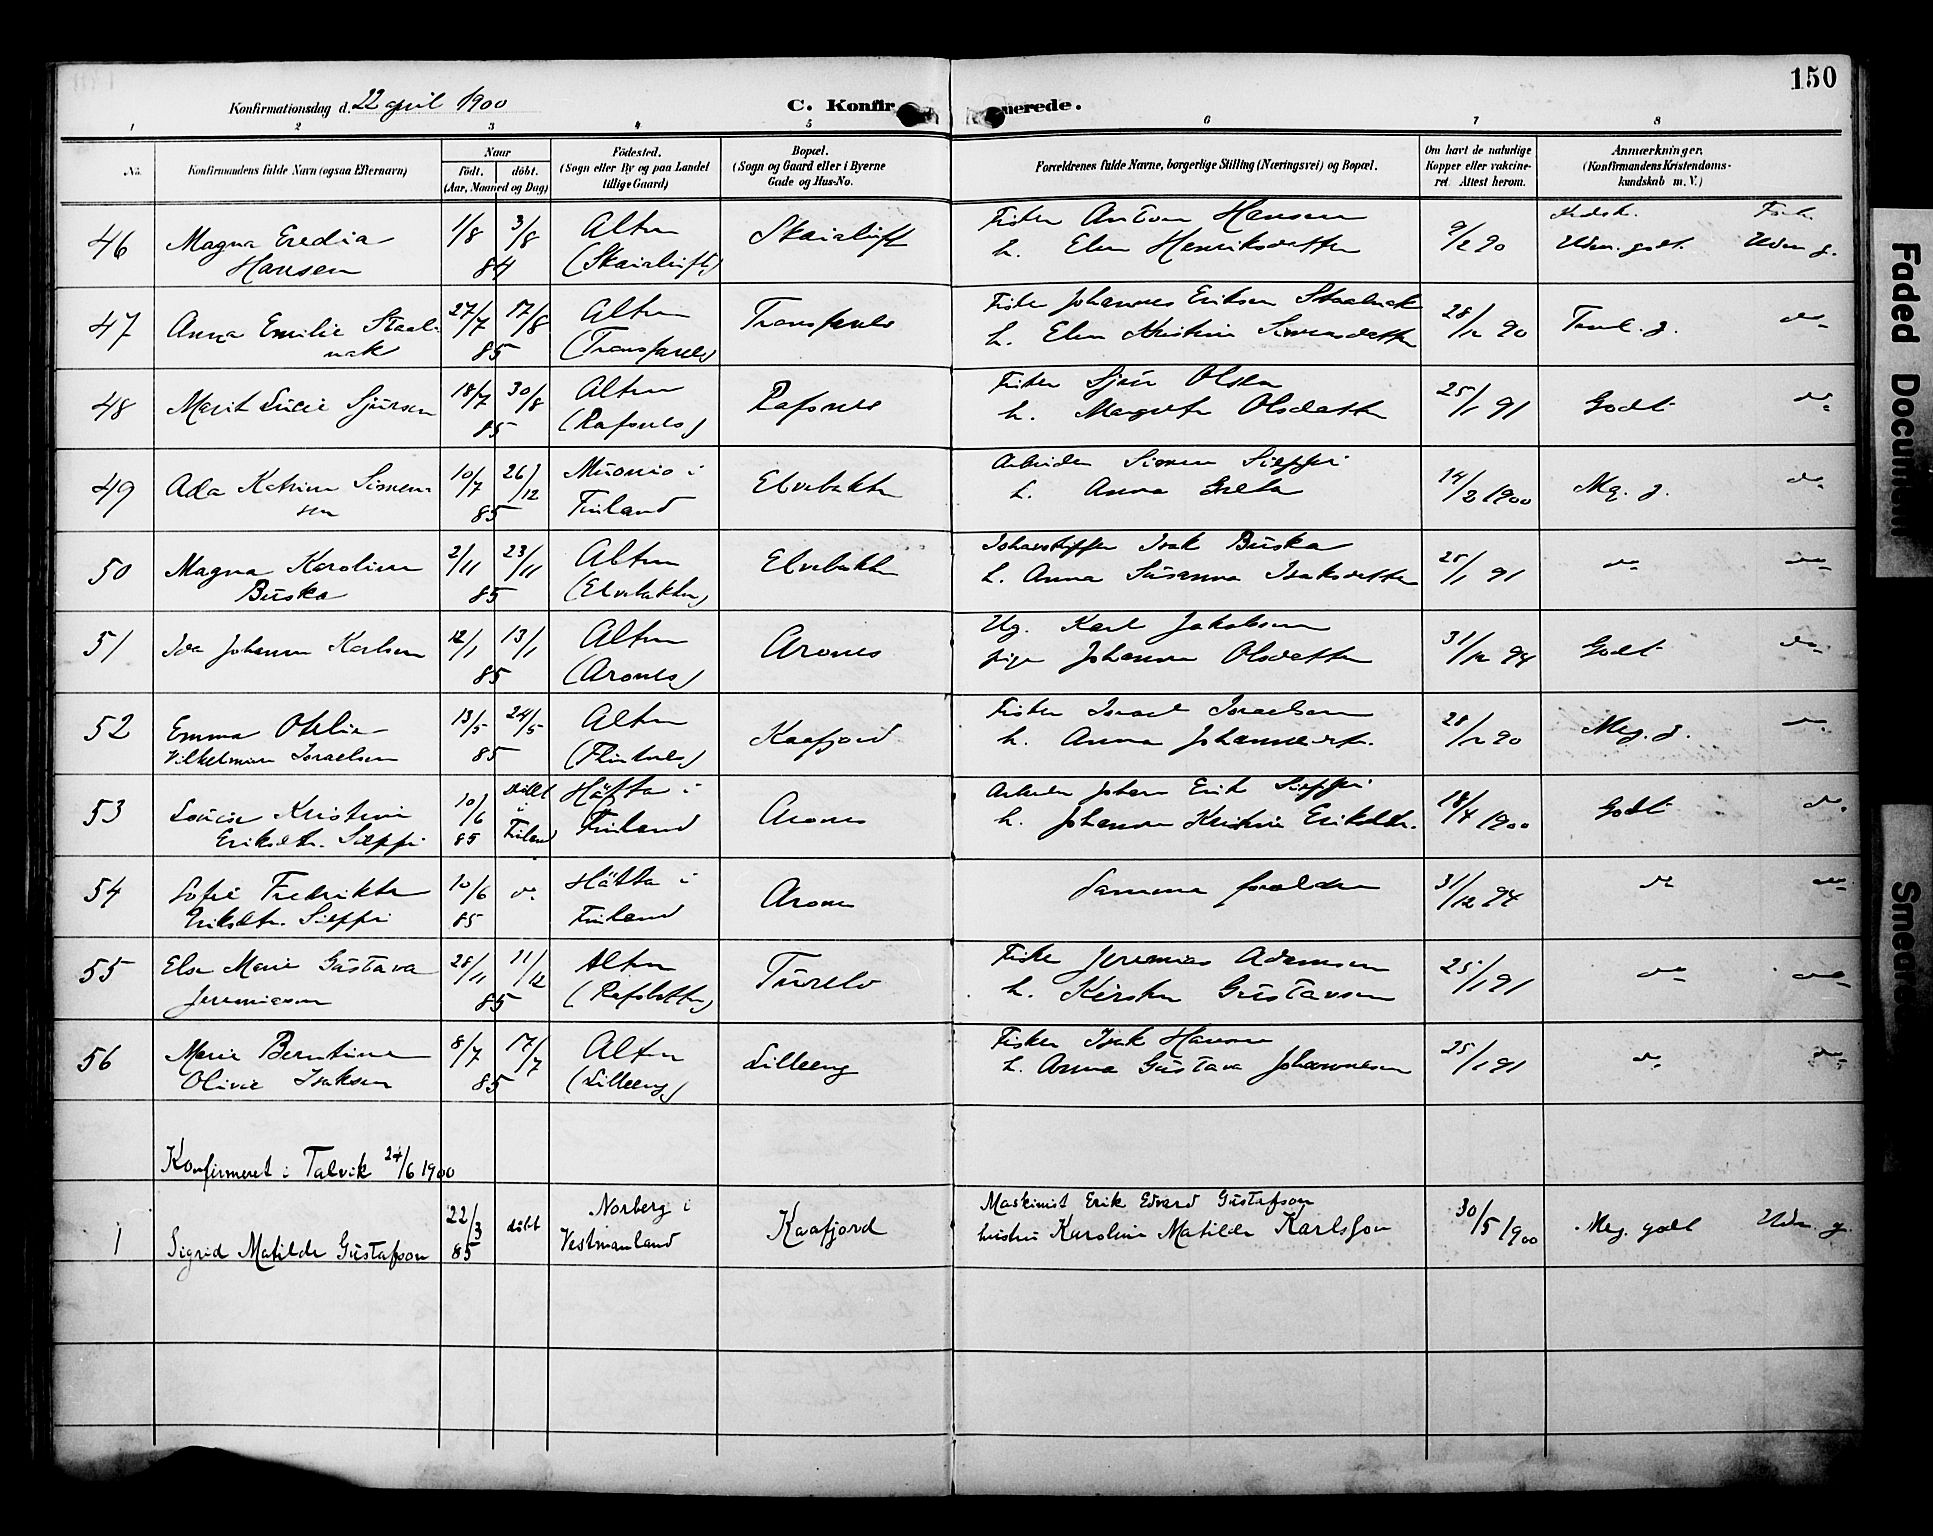 150
Konfirmationsdag d. 22 april 1900
C. Konfir merede.
1 2 3 4 5 6 7 8
No.
Konfirmandens fulde Navn (ogsaa Efternavn)
Naar
født. døbt.
(Aar, Maaned og Dag)
Fødested.
(Sogn eller By og paa Landet
tillige Gaard)
Bopæl.
(Sogn og Gaard eller i Byerne
Gade og Hus-No.
Forældrenes fulde Navne, borgerlige Stilling (Næringsvei) og Bopæl.
Om havt de naturlige
Kopper eller vakcine-
ret. Attest herom.
Anmærkninger,
(Konfirmandens Kristendoms-
kundskab m. V.)
46 Magna Eredia
Hansen
1/8 3/8
84
Alten
(Skaialuft)
Skaialuft
Fisker Anton Hansen
h. Elen Henriksdatter
9/2 90
Kndsk. Flid.
Udm. godt. Udm g.
47 Anna Emilie Staal-
nak
27/7 17/8
85
Alten
(Transfarelv)
Transfarelv
Fisker Johannes Eriksen Staalnak
h. Elen Kristine Simensdatter
28/12 90
Taal. g. do.
48 Marit Lucie Sjursen
18/7 30/8
85
Alten
(Rafsnes)
Rafsnes
Fisker Sjur Olsen
h. Margrete Olsdatter
25/1 91
Godt do.
49 Ada Katrine Simen-
sen
10/7 26/12
85
Muonio i
Finland
Elvebakken
Arbeider Simen Sieppi
h. Anna Greta
14/2 1900
Mg. g. do.
50 Magna Karoline
Buska
2/11 23/11
85
Alten
(Elvebakken)
Elvebakken
Isak Buska
h. Anna Susanna Isaksdatter
25/1 91
do. do.
51 Ida Johanne Karlsen
12/1 13/1
85
Alten
(Arones)
Arones
Ug. Karl Jakobsen
pige Johanna Olsdatter
31/12 94
Godt do.
52 Emma Otelie
Vilhelmine Israelsen
13/5 24/5
85
Alten
(Flintnes)
Kaafjord
Fisker Israel Israelsen
h. Anna Johannesdtr.
28/12 90
Meg. g. do.
53 Lovise Kristine
Eriksdtr. Sieppi
10/6
85
Døbt
i
Finland
Hätta i
Finland
Arones
Arbeider Johan Erik Sieppi
h. Johanna Kristine Eriksdtr.
18/4 1900
Godt do.
54 Sofie Fredrikke
Eriksdtr. Sieppi
10/6
85
do.
Hätta i
Finland
Arones
Samme forældre
31/12 94
do do.
55 Elen Marie Gustava
Jeremiasen
28/11 11/12
85
Alten
(Rafsbotten)
Turelv
Fisker Jeremias Adamsen
h. Kirsten Gustavsen
25/1 91
do. do.
56 Marie Berntine
Olivie Isaksen
8/7 17/7
85
Alten
(Lilleeng)
Lilleeng
Fisker Isak Hansen
h. Anna Gustava Johannesen
25/1 91
do. do.
Konfirmeret i Talvik 24/6 1900
1 Sigrid Matilde Gustafson
22/3
85
døbt
Norberg i
Vestmanland
Kaafjord
Maskinist Erik Edvard Gustafson
hustru Karolina Matilda Karlsson
30/5 1900
Meg. godt Udm g.
Faded Document
Smeared